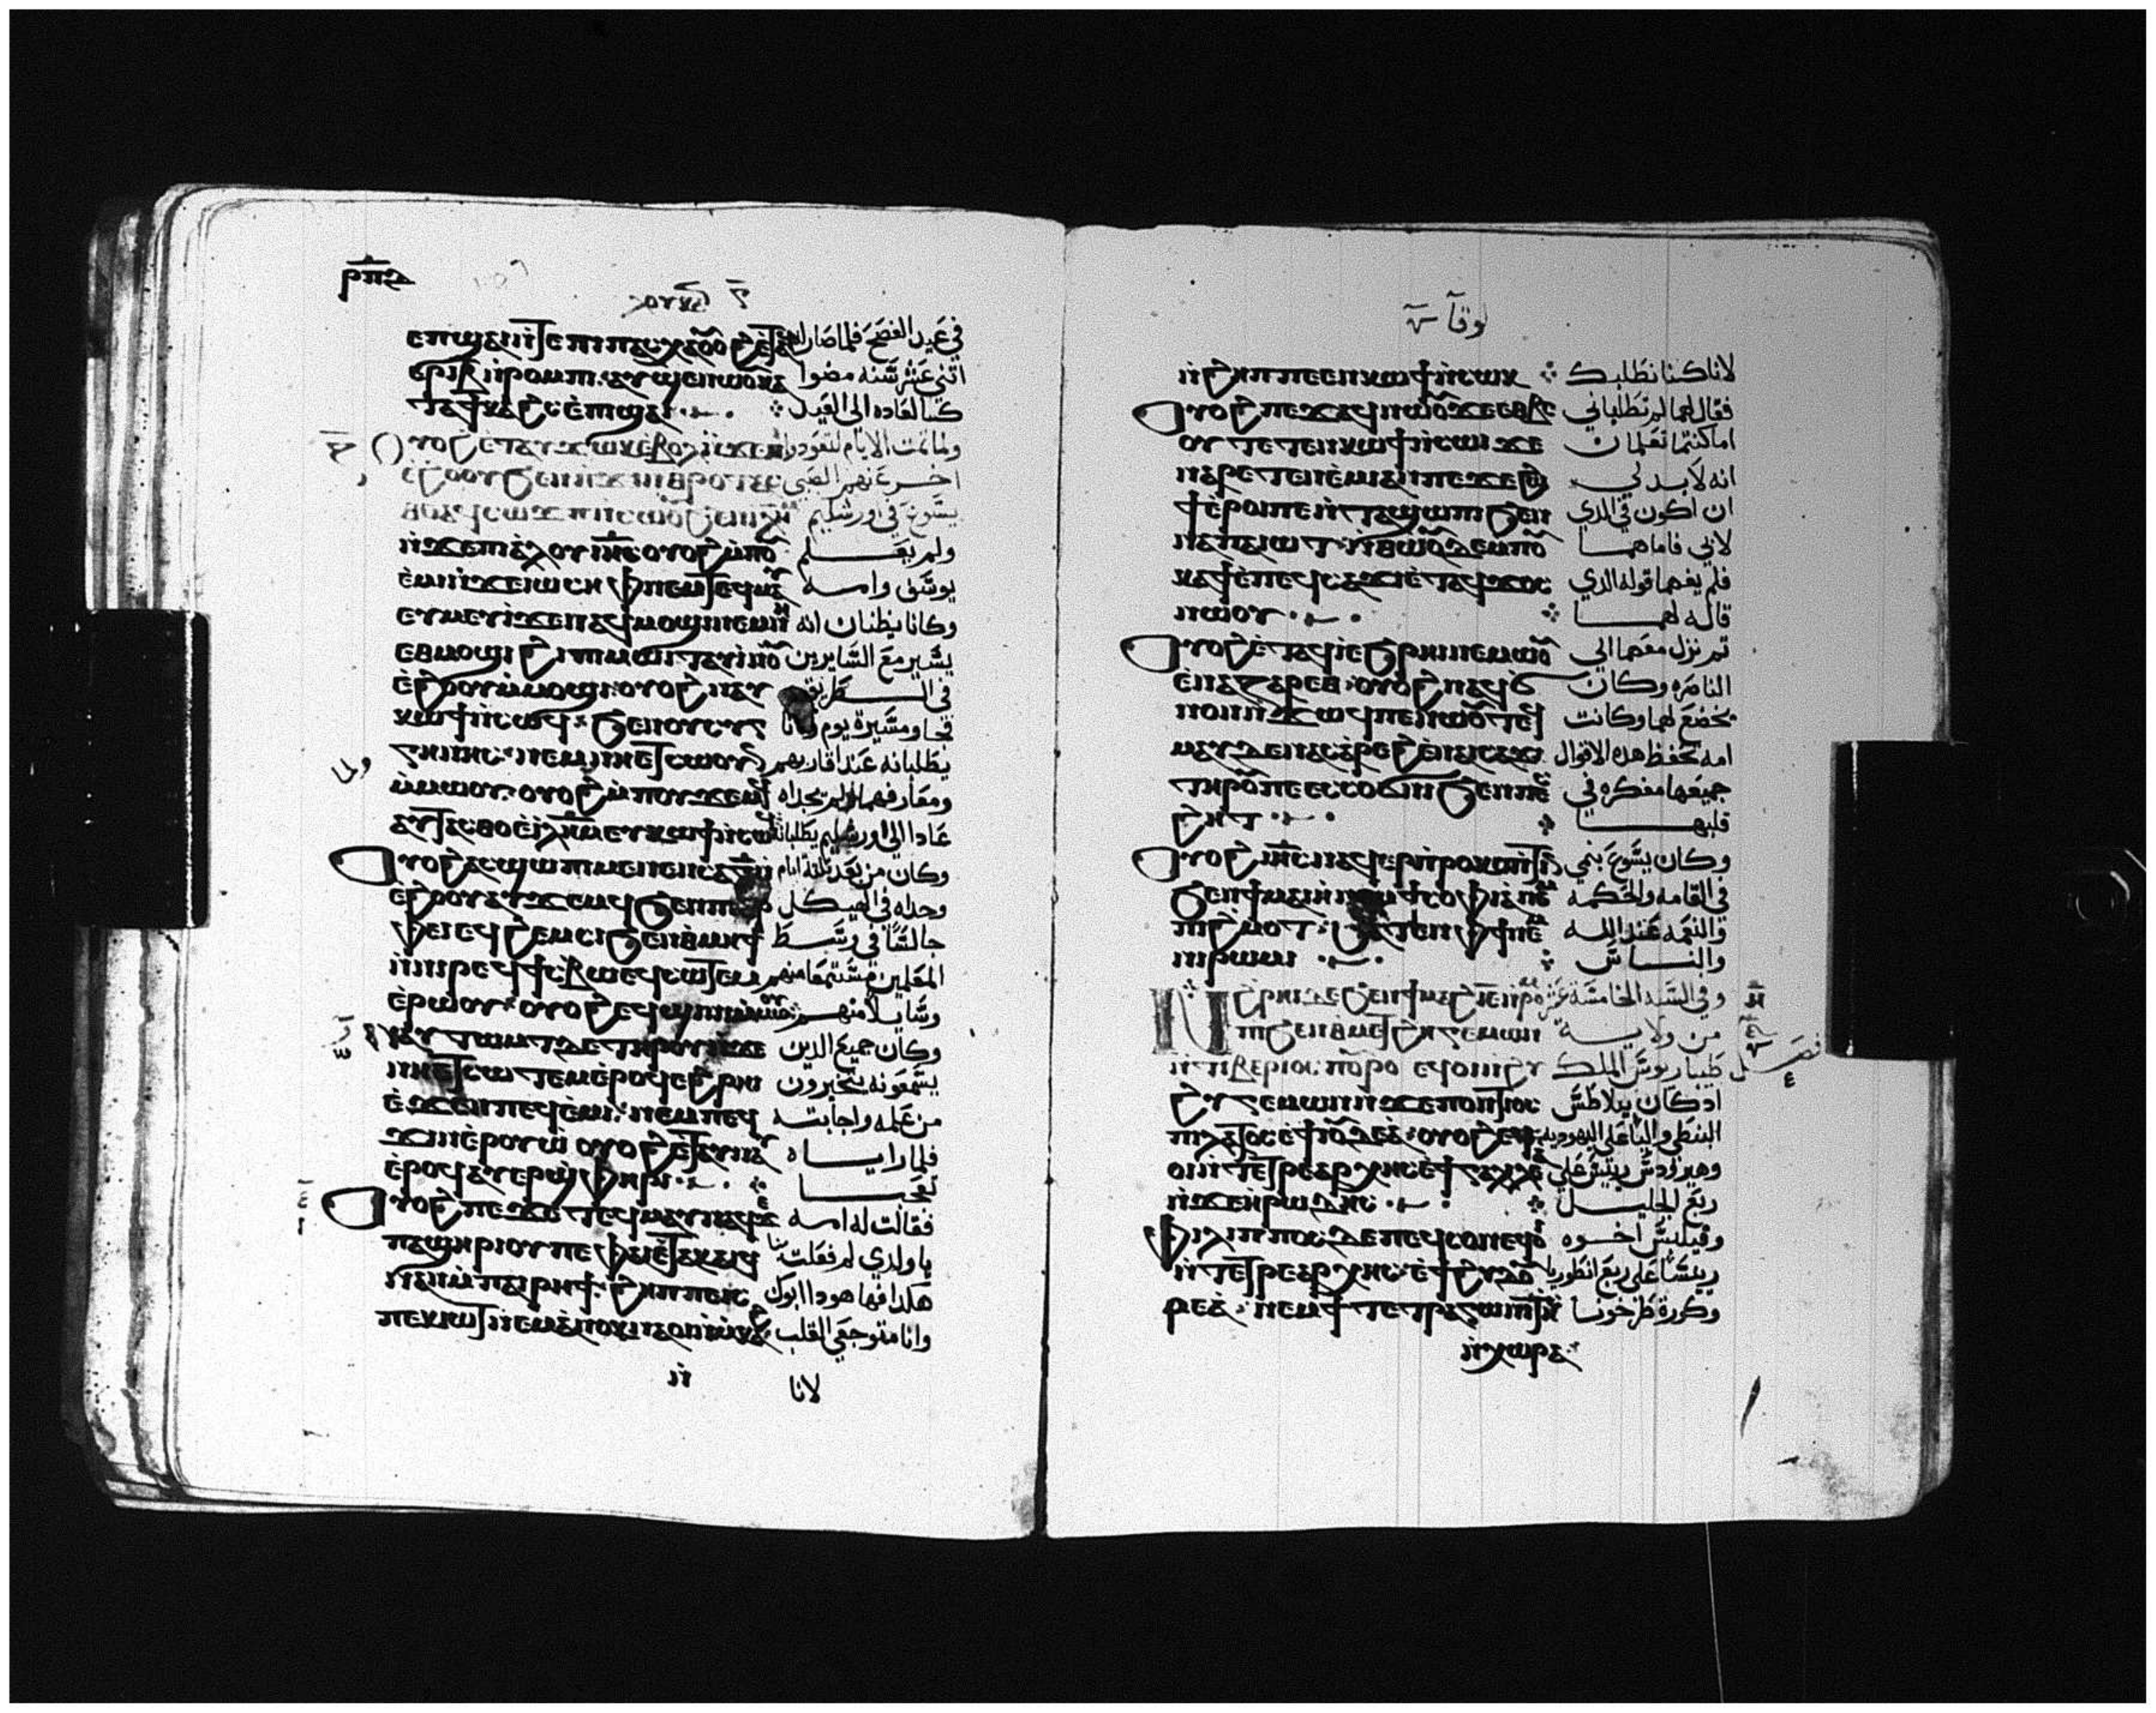 ⲣⲡⲋ
ⲗⲟⲩⲕⲁ
ⲉⲡϣⲁⲓ ⲛ̀ⲧⲉ ⲡⲓⲡⲁⲥⲭⲁ في عيد الفصح فلما صار
ⲉⲣⲓⲃ ⲛ̀ⲣⲟⲙⲡⲓ ⲁⲩϣⲉⲛⲱⲟⲩ اتنى عشر سنه مضوا
ⲕⲁⲧⲁ ϯⲕⲁϩⲥ ⲉ̀ⲡϣⲁⲓ كتب العاده الى العيد
ⲟⲩⲟϩ ⲉ̀ⲧⲁⲩϫⲱⲕ ⲉ̀ⲃⲟⲗ ⲛ̀ϫⲉ ولما تمت الايام ليعودوا
ⲉϩⲟⲟⲩ ϧⲉⲛ اخر عنهم الصبي
ⲁϥⲥⲱϫⲡ ⲛ̀ⲥⲱⲟⲩ ϧⲉⲛ يسوع في اورشليم
ⲛ̀ϫⲉ ⲡⲓⲁ̀ⲗⲟⲩ ⲓⲏⲥ ⲟⲩⲟϩ ⲙ̀ⲡⲟⲩ ولم يعلم
ⲉ̀ⲙⲓ ⲛ̀ϫⲉ ⲓⲱⲥⲏⲫ ⲛⲉⲙ ⲧⲉϥⲙⲁⲩ يوسف وامه
ⲉⲩⲙⲉⲩⲓ̀ ϫⲉ ⲛⲁϥⲙⲟϣⲓ ⲛⲉⲙ ⲛⲏ وكانا يظنان انه
ⲉⲑⲙⲟϣⲓ ϩⲓ ⲡⲓⲙⲱⲓⲧ ⲁⲩⲓ̀ ⲛⲟⲩ يسير مع السايرين
ⲉ̀ϩⲟⲟⲩ ⲙ̀ⲙⲟϣⲓ ⲟⲩⲟϩ ⲛⲁⲩ في الطريق
ⲕⲱϯ ⲛ̀ⲥⲱϥ ϧⲉⲛ ⲛⲟⲩⲥⲩⲅ فجاو مسيرة يوم وكانا
ⲅⲉⲛⲏⲥ ⲛⲉⲙ ⲛⲏ ⲉⲧⲥⲱⲟⲩⲛ يطلبانه عند اقاربهم
ⲙ̀ⲙⲱⲟⲩ ⲟⲩⲟϩ ⲙ̀ⲡⲟⲩϫⲉⲙϥ ومعارفهما ولم يجداه
ⲁⲩⲧⲁⲥⲑⲟ ⲉ̀ⲓⲗⲏⲙ ⲉⲩⲕⲱϯ ⲛ̀ⲥⲱϥ عادا الى اورشليم يطلبانه
ⲟⲩⲟϩ ⲁⲥϣⲱⲡⲓ ⲙⲉⲛⲉⲛⲥⲁ وكان من بعد تلاتة ايام
ⲉ̀ϩⲟⲟⲩ ⲁⲩϫⲉⲙϥ ϧⲉⲛ وجداه في الهيكل
ⲉϥϩⲉⲙⲥⲓ ϧⲉⲛ ⲑⲙⲏϯ جالسًا في وسط
ⲛ̀ⲛⲓⲣⲉϥϯⲥⲃⲱ ⲉϥⲥⲱⲧⲉⲙ المعلمين مستمعا منهم
ⲉ̀ⲣⲱⲟⲩ ⲟⲩⲟϩ ⲉϥϣⲓⲛⲓ وسايلا منهم
ⲛⲁⲩⲧⲱⲙⲧ ⲇⲉ ⲧⲏⲣⲟⲩ ⲛ̀ϫⲉ وكان جميع الدين
ⲛⲏ ⲉⲧⲥⲱⲧⲉⲙ ⲉ̀ⲣⲟϥ ⲉϩⲣⲏⲓ يسمعونه يتحيرون
ⲉ̀ϫⲉⲛ ⲡⲉϥⲉ̀ⲙⲓ ⲛⲉⲙ ⲡⲉϥ من علمه واجابته
ϫⲓⲛⲉ̀ⲣⲟⲩⲱ̀ ⲟⲩⲟϩ ⲉ̀ⲧⲁⲩⲛⲁⲩ فلما راياه
ⲉ̀ⲣⲟϥ ⲁⲩⲉⲣϣ̀ⲫⲏⲣⲓ تعجبا
ⲟⲩⲟϩ ⲡⲉϫⲉ ⲧⲉϥⲙⲁⲩ ⲛⲁϥ ϫⲉ فقالت له امه
ⲡⲁϣⲏⲣⲓ ⲟⲩ ⲡⲉ ⲫⲁⲓ ⲉⲧⲁⲕⲁⲓϥ يا ولدي لم فعلت بنا
ⲛⲁⲛ ⲙ̀ⲡⲁⲓⲣⲏϯ ϩⲏⲡⲡⲉ ⲓⲥ هكدا فها هودا ابوك
ⲡⲉⲕⲓⲱⲧ ⲛⲉⲙ ⲁ̀ⲛⲟⲕ ⲛⲁⲛⲟⲓ ⲛ̀ⲙ̀ⲕⲁϩ وانا متوجعي القلب
ⲛ̀ لانا
لوقا
ⲛ̀ϩⲏⲧ ⲡⲉ ⲉⲛⲕⲱϯ ⲛ̀ⲥⲱⲕ لانا كنا نطلبك
ⲟⲩⲟϩ ⲡⲉϫⲁϥ ⲛⲱⲟⲩ ϫⲉ ⲉⲑⲃⲉ فقال لهما لم تطلباني
ⲟⲩ ⲧⲉⲧⲉⲛⲕⲱϯ ⲛ̀ⲥⲱⲓ ϫⲉ اما كنتما تعلمان
ⲛⲁⲣⲉⲧⲉⲛⲉ̀ⲙⲓ ⲁⲛ ⲡⲉ ϫⲉ ϩⲱ انه لابد لي
ϯ ⲉ̀ⲣⲟⲓ ⲡⲉ ⲛ̀ⲧⲁϣⲱⲡⲓ ϧⲉⲛ ان اكون في الدي
ⲛⲁ ⲡⲁⲓⲱⲧ ⲛ̀ⲑⲱⲟⲩ ⲇⲉ ⲙ̀ⲡⲟⲩ لابي فاما هما
ⲕⲁϯ ⲉ̀ⲡⲉϥⲥⲁϫⲓ ⲉ̀ⲧⲁϥϫⲟⲥ فلم يفهما قوله الدي
ⲛⲱⲟⲩ قاله لهما
ⲟⲩⲟϩ ⲉ̀ⲧⲁϥⲓ̀ ⲉ̀ϧⲣⲏⲓ ⲛⲉⲙⲱⲟⲩ تم نزل معهما الى
ⲉ̀ⲛⲁⲍⲁⲣⲉⲑ ⲟⲩⲟϩ ⲛⲁϥϭ الناصره وكان
ⲛⲟⲛ ⲛ̀ϫⲱϥ ⲡⲉ ⲛⲱⲟⲩ ⲧⲉϥ يخضع لهما وكانت
ⲙⲁⲩ ⲇⲉ ⲛⲁⲥⲁ̀ⲣⲉϩ ⲉ̀ⲛⲁⲓⲥⲁϫⲓ امه تحفظ هده الاقوال
ⲧⲏⲣⲟⲩ ⲡⲉ ⲉⲥⲥⲟϭⲛⲓ ϧⲉⲛ ⲡⲉⲥ جميعها مفكره في
ϩⲏⲧ قلبها
ⲟⲩⲟϩ ⲓⲏⲥ ⲛⲁϥⲉⲣⲡⲣⲟⲕⲟⲡⲧⲓⲛ وكان يسوع ينمي
ϧⲉⲛ ϯⲙⲁⲓⲏ ⲛⲉⲙ ϯⲥⲟⲫⲓⲁ̀ ⲛⲉⲙ في القامه والحكمه
ⲡⲓϩⲙⲟⲧ ϧⲁⲧⲉⲛ ⲫϯ ⲛⲉⲙ والنعمه عند الله
ⲛⲓⲣⲱⲙⲓ والناس
ⲛ̀ϩⲣⲏⲓ ⲇⲉ ϧⲉⲛ ϯⲙⲁϩ ⲓⲉ ⲛ̀ⲣⲟⲙ وفي السنه الخامسة عشر
ⲡⲓ ϧⲉⲛ ⲑⲙⲉⲧϩⲏⲅⲉⲙⲱⲛ من ولاية
ⲛ̀ⲧⲓⲃⲉⲣⲓⲟⲥ ⲡⲟⲩⲣⲟ ⲉϥⲟⲓ ⲛ̀ϩⲩ طيباريوس الملك
ϩⲩⲅⲉⲙⲱⲛ ⲛ̀ϫⲉ ⲡⲟⲛⲧⲓⲟⲥ ادكان بيلاطس
ⲡⲓⲗⲁⲧⲟⲥ ⲉ̀ϯⲓⲟⲩⲇⲉⲁ̀ ⲟⲩⲟϩ ⲉϥ البنطي واليا على اليهوديه
ⲟⲓ ⲛ̀ⲧⲉⲧⲣⲁⲁⲣⲭⲏⲥ ⲉ̀ϯⲅⲁⲗⲓⲗⲉⲁ وهيرودس رييس على
ⲛ̀ϫⲉ ⲏⲣⲱⲇⲏⲥ ربع الجليل
ⲫⲓⲗⲓⲡⲡⲟⲥ ⲇⲉ ⲡⲉϥⲥⲟⲛ ⲉϥⲟⲓ وفيلبس اخوه
ⲛ̀ⲧⲉⲧⲣⲁⲁⲣⲭⲏⲥ ⲉ̀ϯϩⲩⲇⲟⲩ رييسًا على ربع انطوريا
ⲣⲉⲁ̀ ⲛⲉⲙ ϯⲧⲉⲧⲣⲁⲅⲱⲛⲓⲧⲏⲥ وكورة طرخونيا
ⲛ̀ⲭⲱⲣⲁ